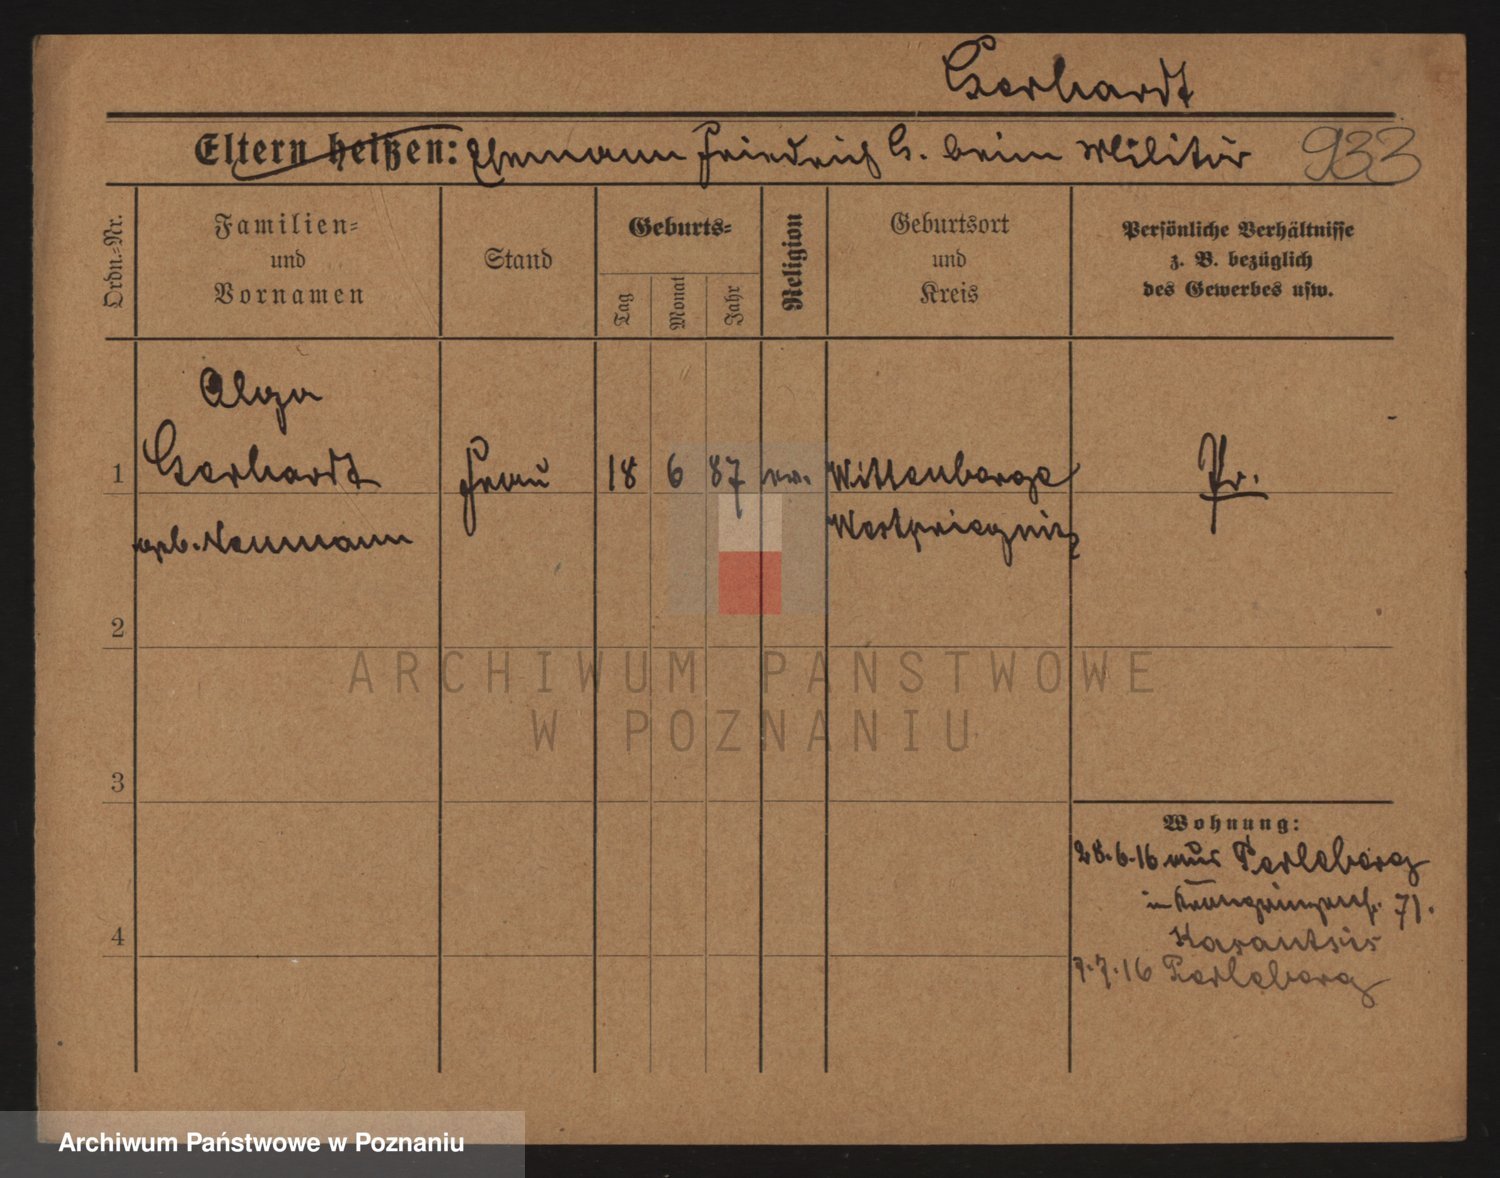 Gerhardt
Eltern heißen: Ehemann Friedrich G. beim Militär 933
Ordn.-Nr.
Familien-
und
Vornamen
Stand
Geburts-
Tag
Monat
Jahr
Religion
Geburtsort
und
Kreis
Persönliche Verhältnisse
z. B. bezüglich
des Gewerbes usw.
Olga
1 Gerhardt Frau 18 6 87 ev. Wittenberge Pr.
geb. Neumann Westpriegnitz
2
ARCHIWUM PAŃSTWOWE
W POZNANIU
3
Wohnung:
28.6.16 aus Perleberg
71.
4
7.7.16 Perleberg
Archiwum Państwowe w Poznaniu